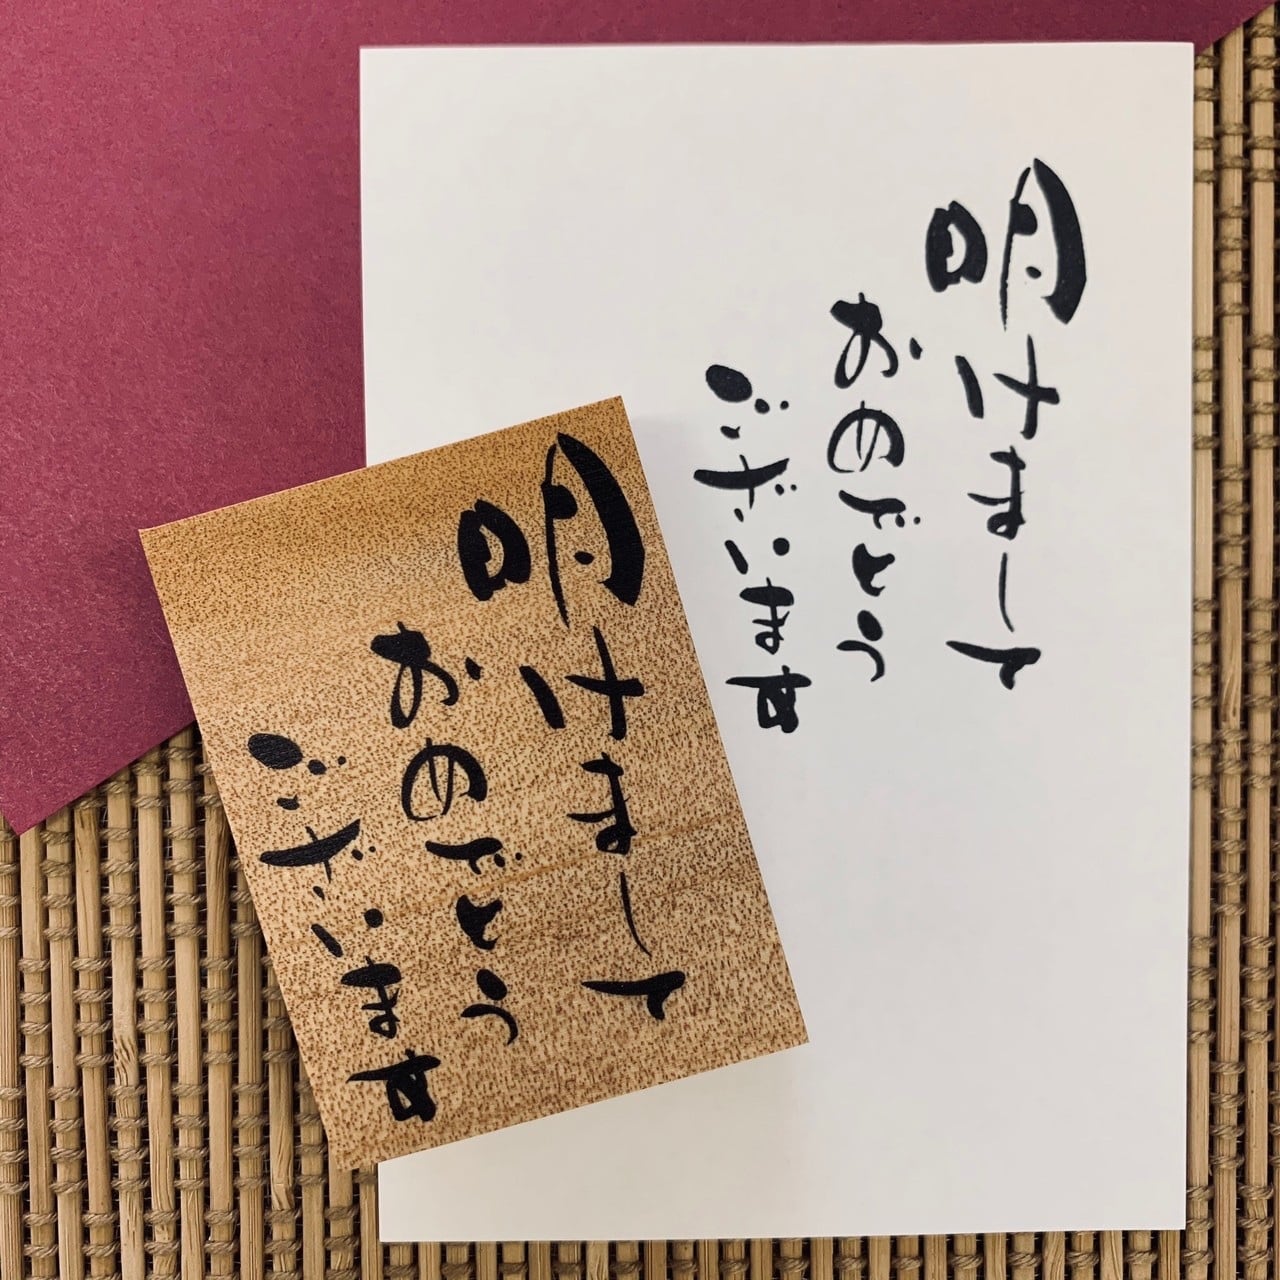 明けまして
おめでとう
ございます
明けまして
おめでとう
ございます